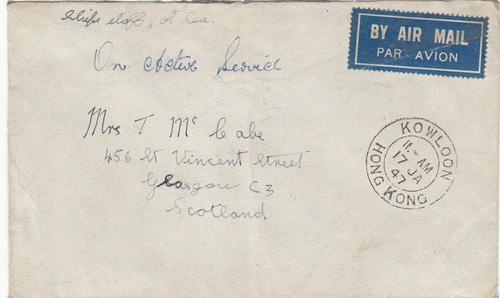 Ships Staff, At Sea.
BY AIR MAIL
PAR AVION
On Active Service
Mrs T McCabe
456 St Vincent Street
Glasgow C3
Scotland
KOWLOON
11- AM
17 JA
47
HONG KONG